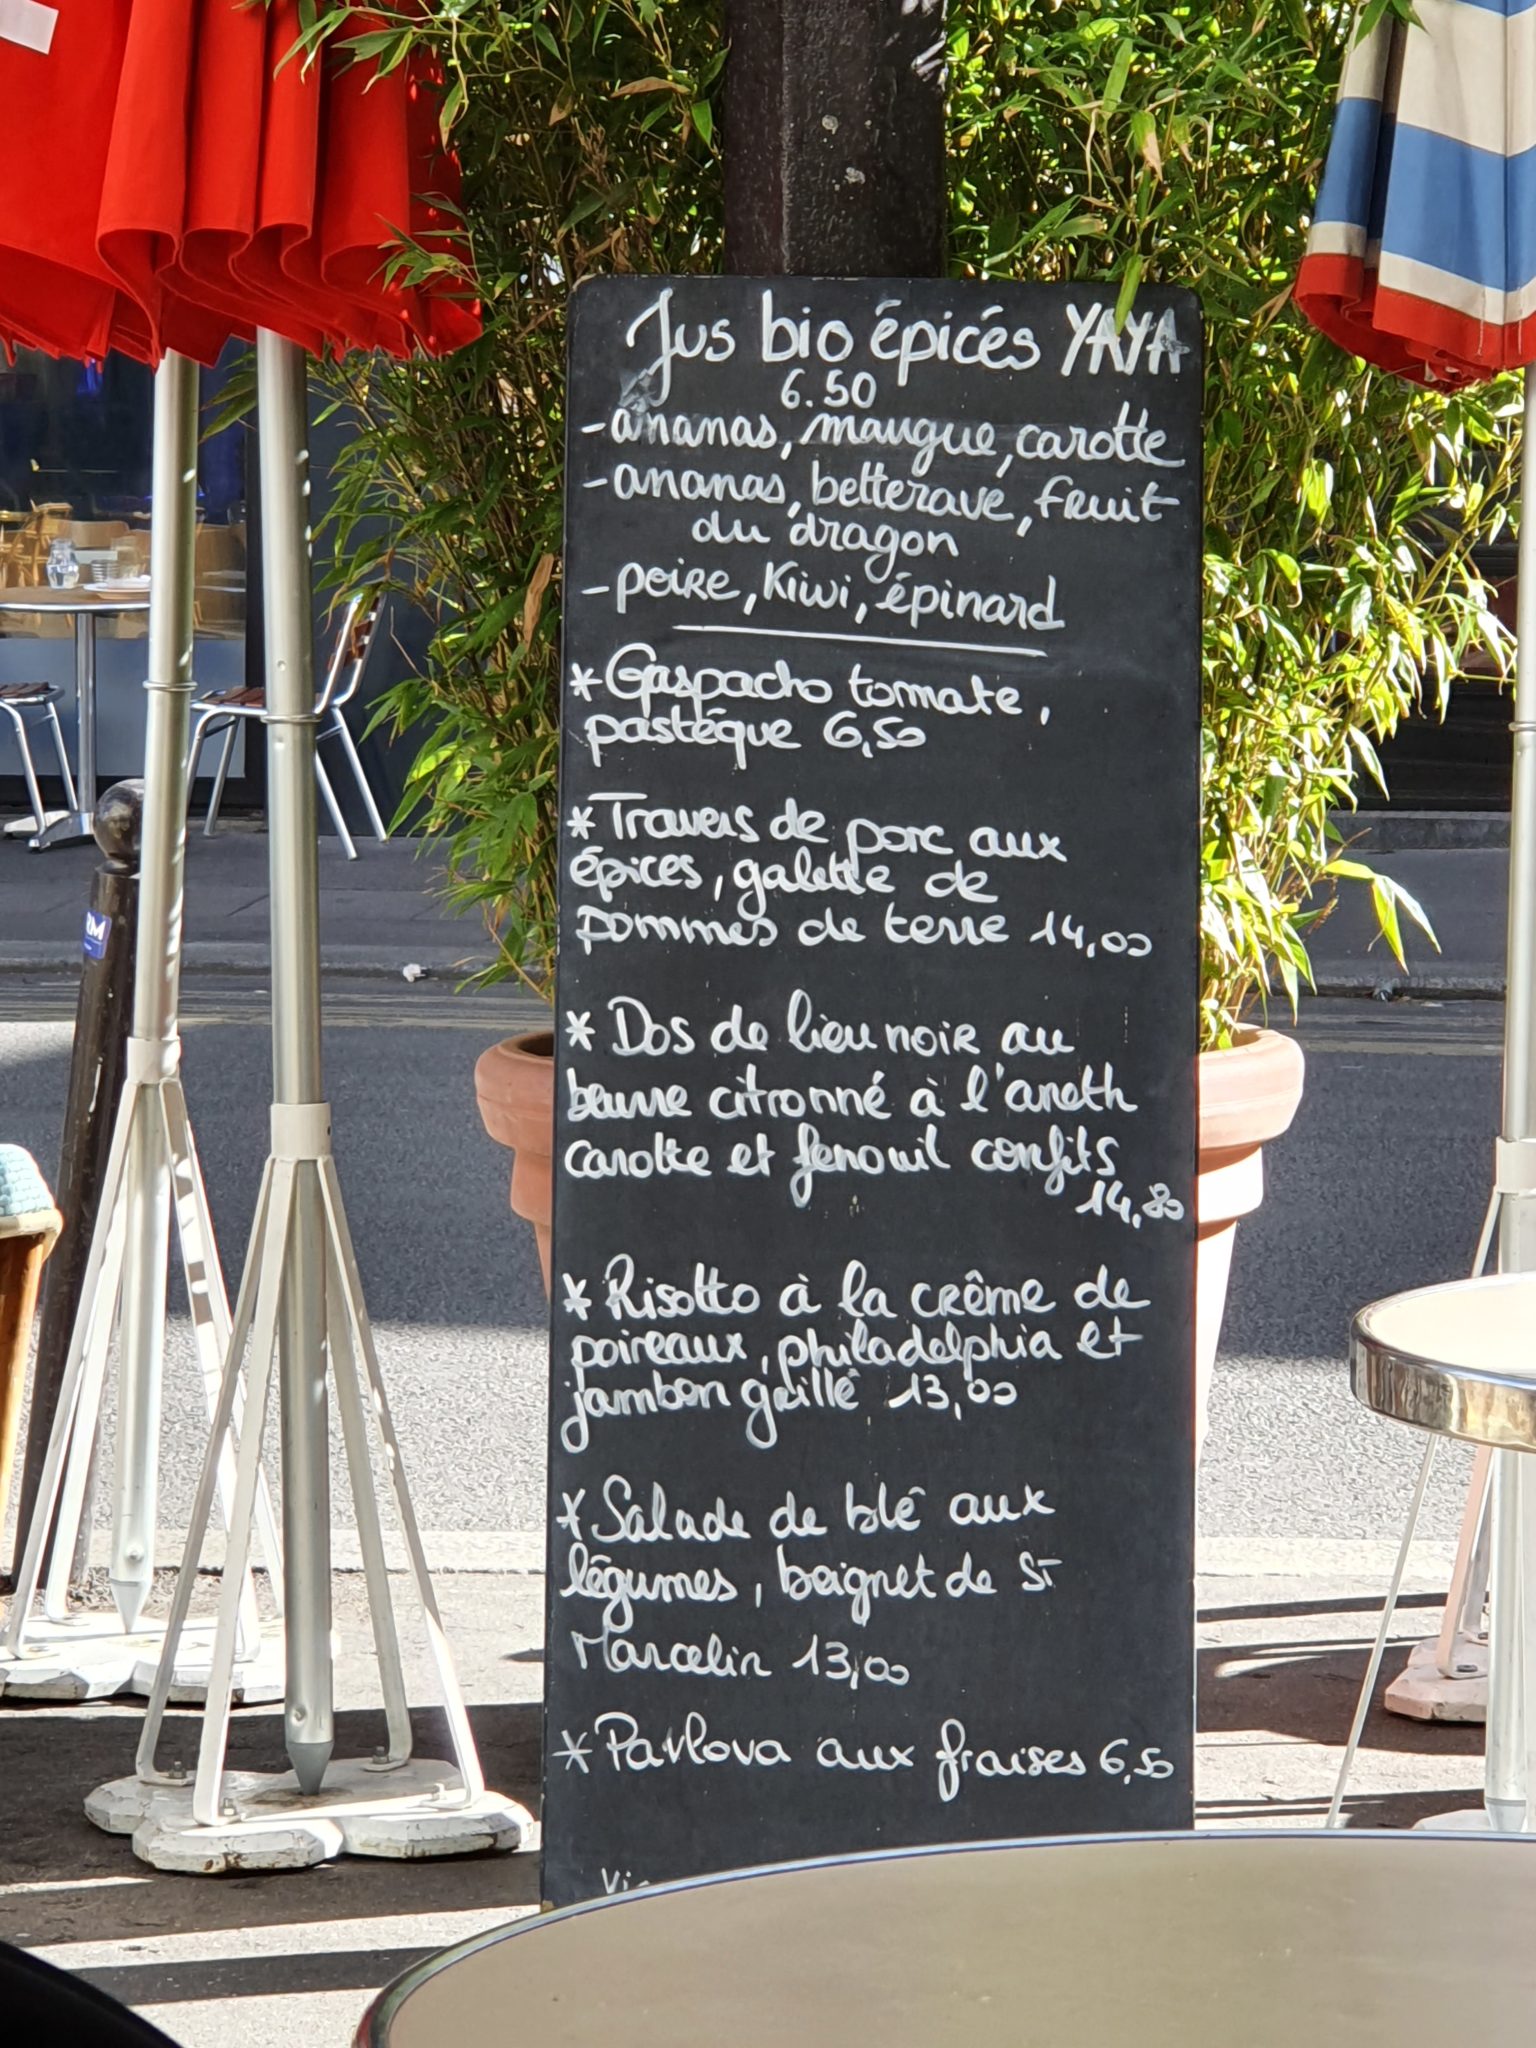 Jus bio épicés YAYA
6.50
-ananas, mangue, carotte
-ananas, betterave, fruit
du dragon
-poire, Kiwi, épinard
*Gaspacho tomate,
pastéque 6,50
*Travers de porc aux
épices, galette de
pommes de terre 14,00
*Dos de lieu noir au
beurre citronné à l'aneth
carotte et fenouil confits
14,80
*Risotto à la crême de
poireaux, philadelphia et
jambon grillé 13,00
*Salade de blé aux
légumes, beignet de St
Marcelin 13,00
*Pavlova aux fraises 6,50
RM